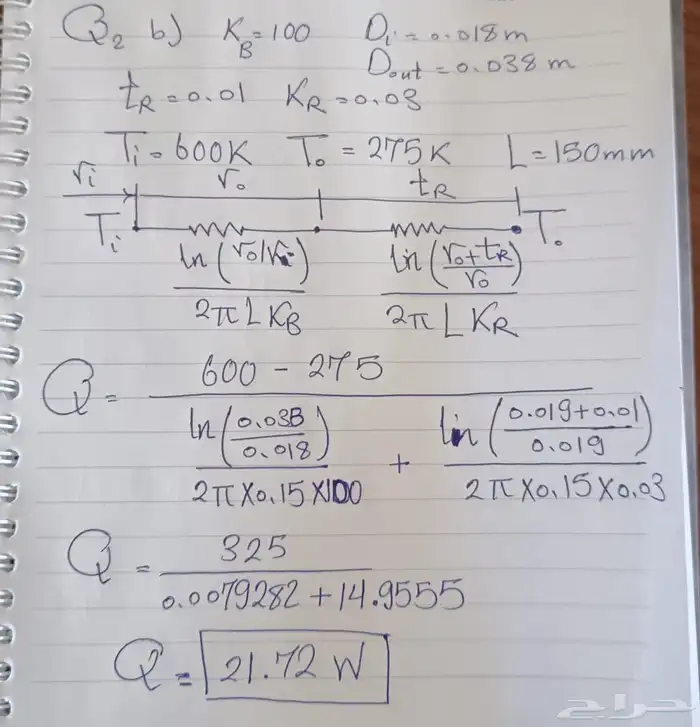 Q2 b) KB=100 Di=0.018m
Dout=0.038m
tR=0.01 KR=0.03
Ti=600K To=275K L=150mm
ri ro tR
Ti To
ln(ro/ri) / 2πLKB lin((ro+tR)/ro) / 2πLKR
Q = (600-275) / (ln(0.038/0.018) / 2π×0.15×100 + lin((0.019+0.01)/0.019) / 2π×0.15×0.03)
Q = 325 / (0.0079282+14.9555)
Q = 21.72 W
حراج